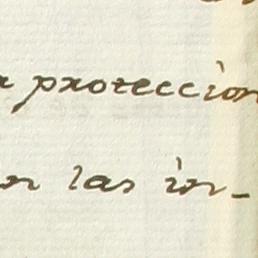 proteccion
las in-